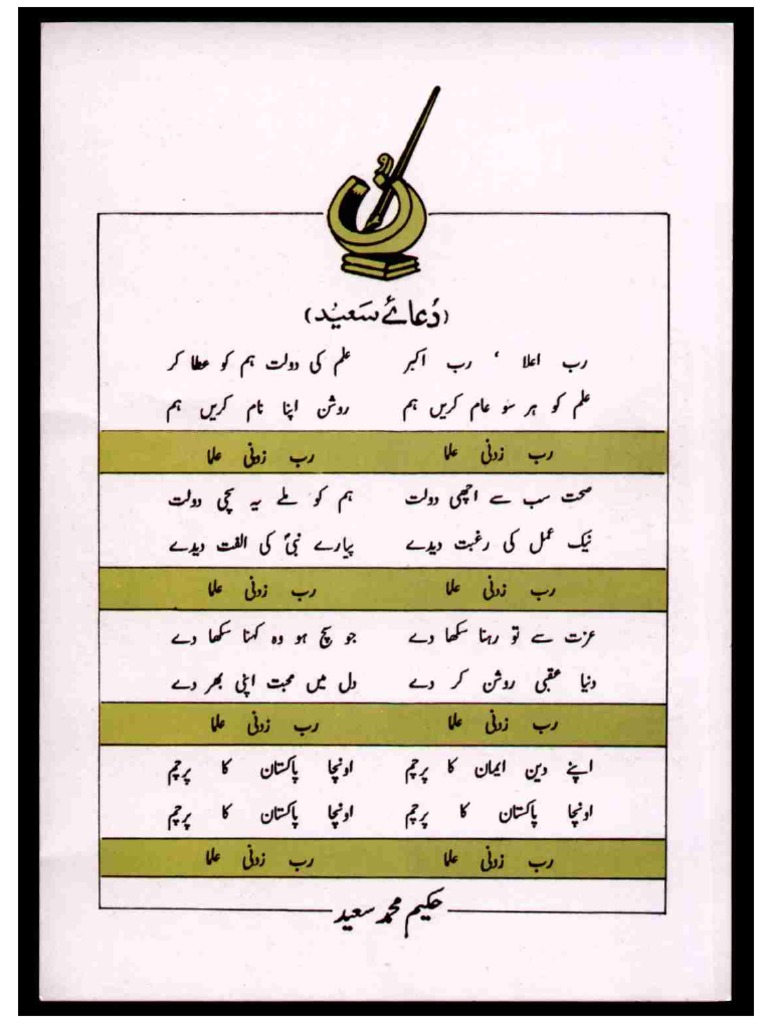 (دُعائے سَعید)
رب اعلا ، رب اکبر علم کی دولت ہم کو عطا کر
علم کو ہر سو عام کریں ہم روشن اپنا نام کریں ہم
رب زدنی علما رب زدنی علما
صحت سب سے اچھی دولت ہم کو ملے یہ سچی دولت
نیک عمل کی رغبت دیدے پیارے نبیؐ کی الفت دیدے
رب زدنی علما رب زدنی علما
عزت سے تو رہنا سکھا دے جو سچ ہو وہ کہنا سکھا دے
دنیا عقبی روشن کر دے دل میں محبت اپنی بھر دے
رب زدنی علما رب زدنی علما
اپنے دین ایمان کا پرچم اونچا پاکستان کا پرچم
اونچا پاکستان کا پرچم اونچا پاکستان کا پرچم
رب زدنی علما رب زدنی علما
حکیم محمد سعید